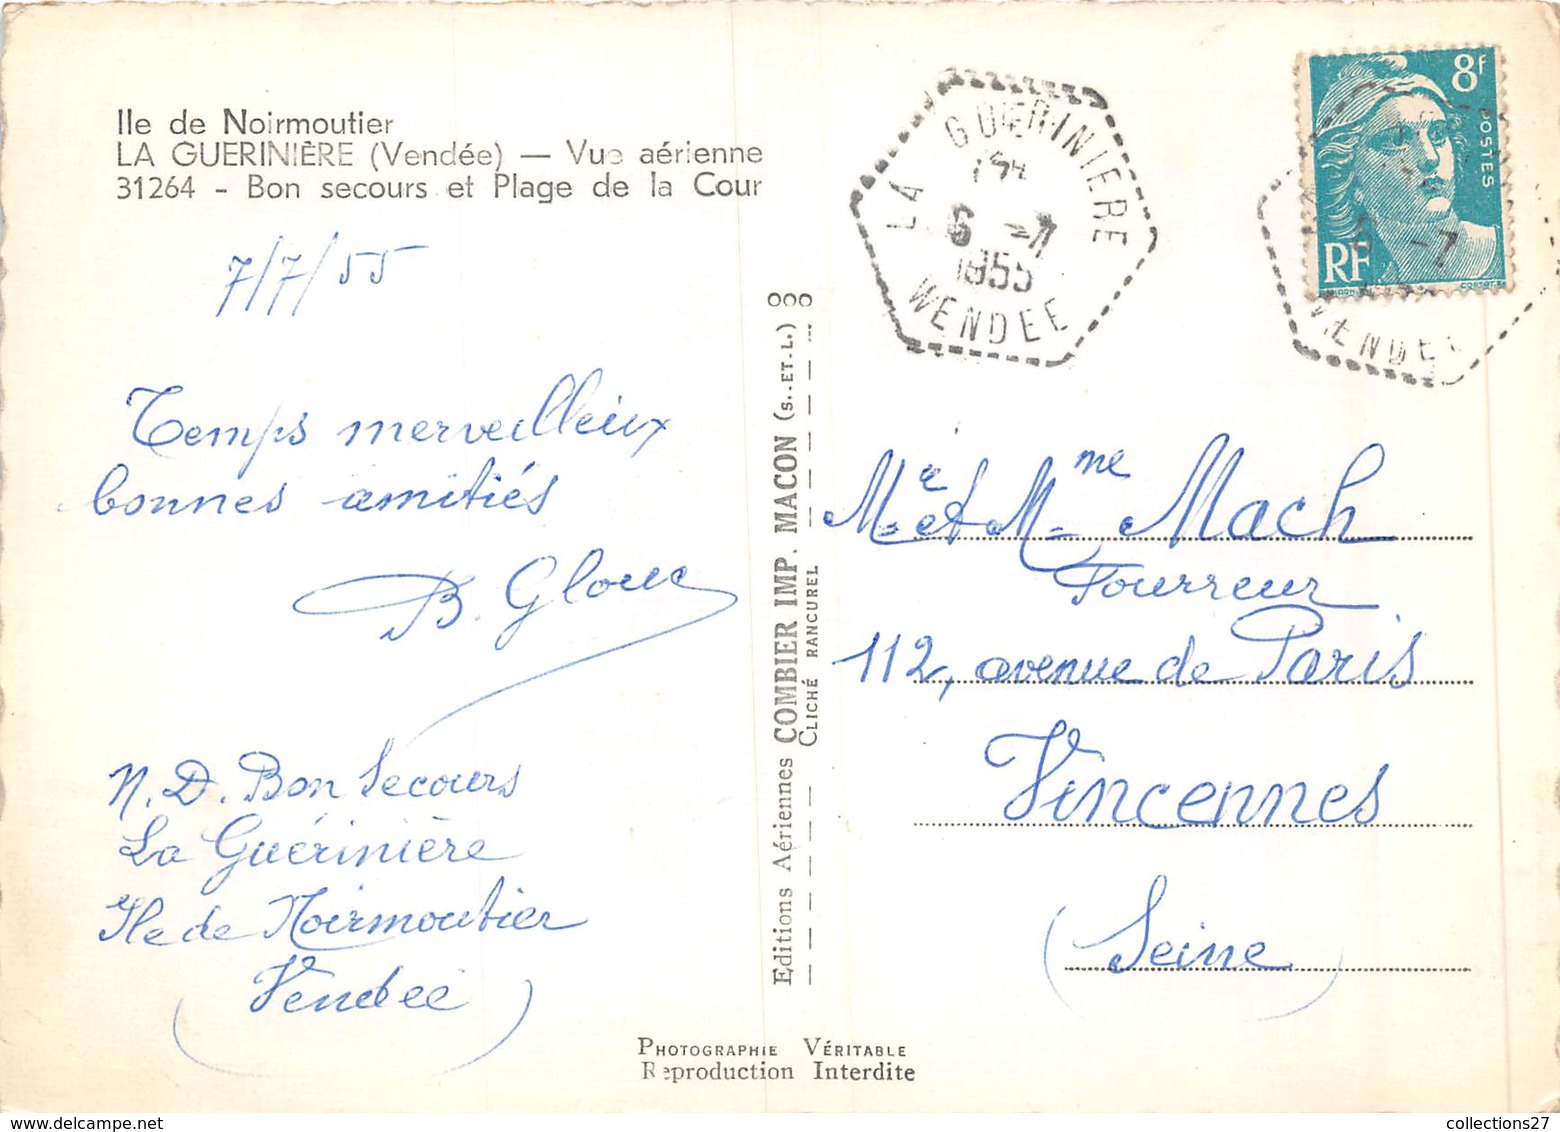 Ile de Noirmoutier
LA GUERINIÈRE (Vendée) — Vue aérienne
31264 - Bon secours et Plage de la Cour
7/7/55
Temps merveilleux
bonnes amitiés
B. Glouc
N. D. Bon Secours
La Guérinière
Ile de Noirmoutier
(Vendée)
Editions Aériennes COMBIER IMP. MACON (S.-ET-L.)
CLICHÉ RANCUREL
LA GUERINIERE
6 -7
1955
VENDEE
8f
POSTES
RF
6 -7
VENDEE
Mr et Mme Mach
Fourreur
112, avenue de Paris
Vincennes
(Seine)
PHOTOGRAPHIE VÉRITABLE
Reproduction Interdite
collections27